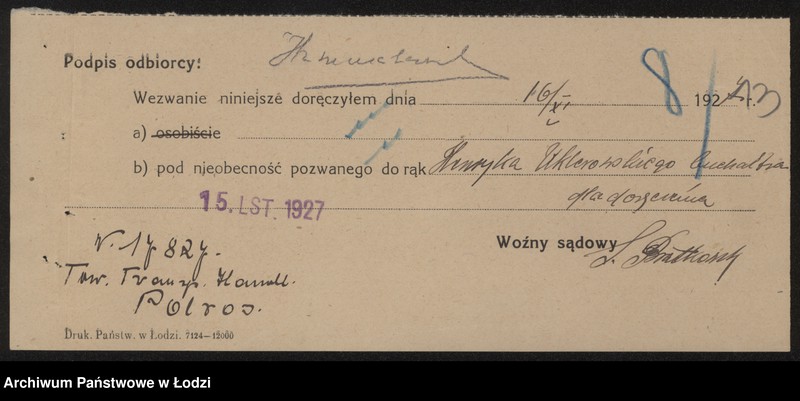 Podpis odbiorcy:
8
13
Wezwanie niniejsze doręczyłem dnia 16/XI 1927 r.
a) osobiście
b) pod nieobecność pozwanego do rąk Henryka
dla doręczenia
15. LST. 1927
Woźny sądowy
N. 17827.
Tow. Transp. Handl.
Polros.
Druk. Państw. w Łodzi. 7124—12000
Archiwum Państwowe w Łodzi